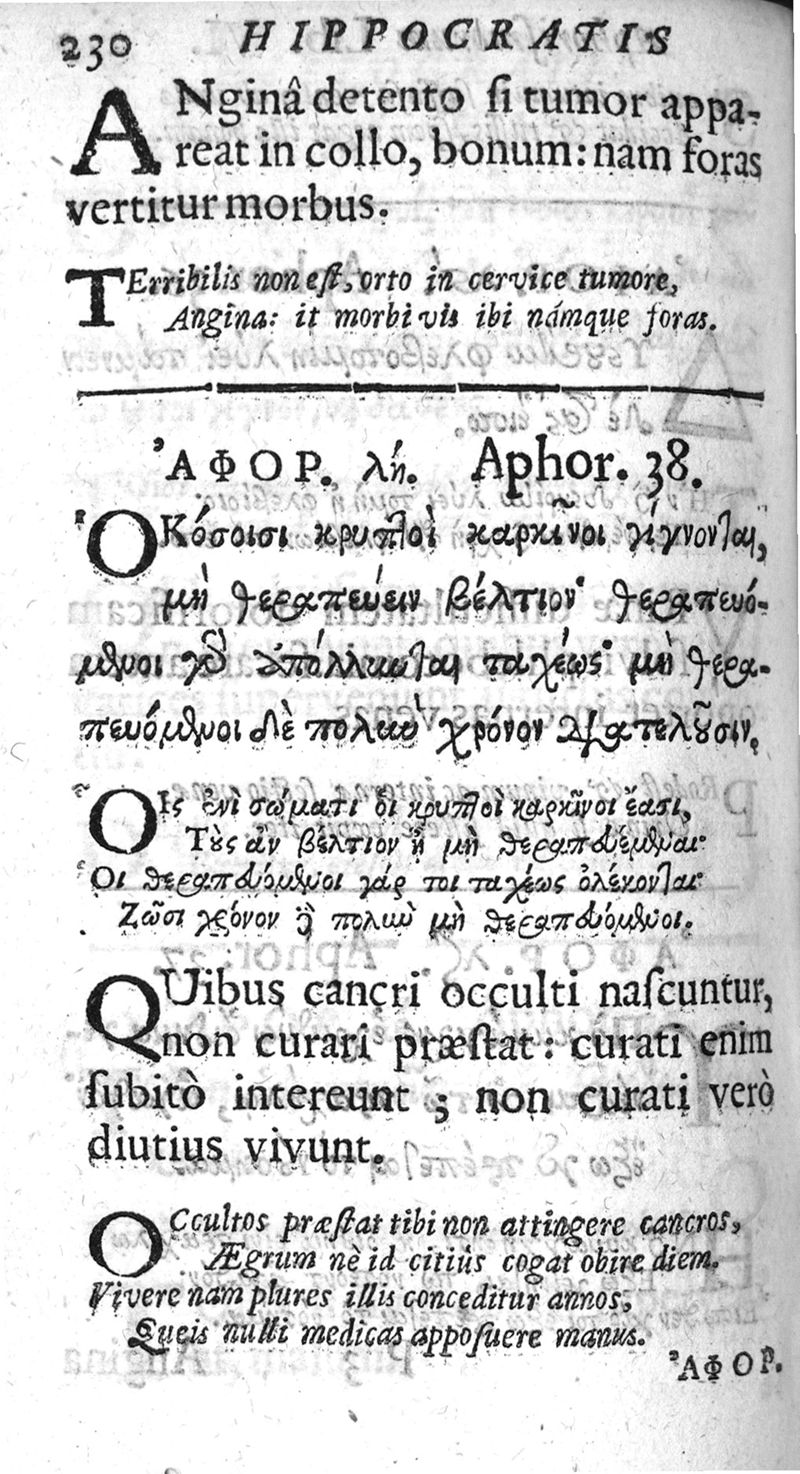 230 HIPPOCRATIS
ANginâ detento ſi tumor appa-
reat in collo, bonum: nam foras
vertitur morbus.
TErribilis non eſt, orto in cervice tumore,
Angina: it morbi vis ibi námque foras.
ἈΦΟΡ. λή. Aphor. 38.
ὉΚόσοισι κρυπτοὶ καρκῖνοι γίγνονται,
μὴ θεραπεύειν βέλτιον· θεραπευό-
μενοι γὸ ἀπόλλυνται ταχέως· μὴ θερα-
πευόμενοι δὲ πολιὼ χρόνον διατελοῦσιν.
ΟἿς ἐνὶ σώματι δὴ κρυπτοὶ καρκῖνοι ἔασι,
Τοὺς ἀν βέλτιον ἢ μὴ θεραπευέμεναι·
Οἱ θεραπευόμενοι γάρ τοι ταχέως ὀλέκονται·
Ζῶσι χρόνον ἢ πολιὼ μὴ θεραπευόμενοι.
QUibus cancri occulti naſcuntur,
non curari præſtat: curati enim
ſubitò intereunt; non curati verò
diutius vivunt.
OCcultos præſtat tibi non attingere cancros,
Ægrum nè id citiùs cogat obire diem.
Vivere nam plures illis conceditur annos,
Queis nulli medicas appoſuere manus.
ἈΦΟΡ.